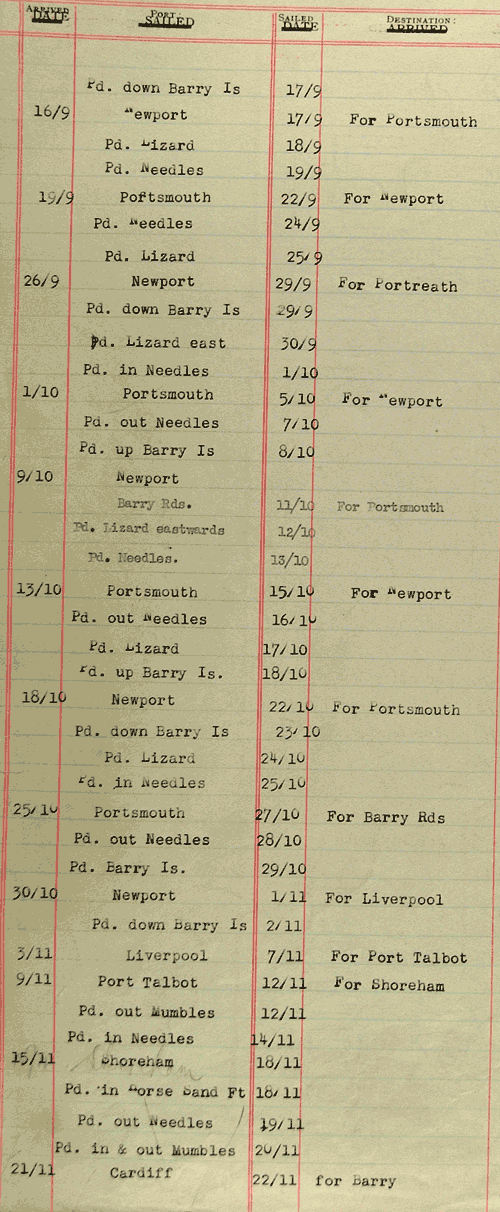 ARRIVED DATE PORT: SAILED SAILED DATE DESTINATION: ARRIVED
Pd. down Barry Is 17/9
16/9 Newport 17/9 For Portsmouth
Pd. Lizard 18/9
Pd. Needles 19/9
19/9 Portsmouth 22/9 For Newport
Pd. Needles 24/9
Pd. Lizard 25/9
26/9 Newport 29/9 For Portreath
Pd. down Barry Is 29/9
Pd. Lizard east 30/9
Pd. in Needles 1/10
1/10 Portsmouth 5/10 For Newport
Pd. out Needles 7/10
Pd. up Barry Is 8/10
9/10 Newport
Barry Rds. 11/10 For Portsmouth
Pd. Lizard eastwards 12/10
Pd. Needles. 13/10
13/10 Portsmouth 15/10 For Newport
Pd. out Needles 16/10
Pd. Lizard 17/10
Pd. up Barry Is. 18/10
18/10 Newport 22/10 For Portsmouth
Pd. down Barry Is 23/10
Pd. Lizard 24/10
Pd. in Needles 25/10
25/10 Portsmouth 27/10 For Barry Rds
Pd. out Needles 28/10
Pd. Barry Is. 29/10
30/10 Newport 1/11 For Liverpool
Pd. down Barry Is 2/11
3/11 Liverpool 7/11 For Port Talbot
9/11 Port Talbot 12/11 For Shoreham
Pd. out Mumbles 12/11
Pd. in Needles 14/11
15/11 Shoreham 18/11
Pd. in Horse Sand Ft 18/11
Pd. out Needles 19/11
Pd. in & out Mumbles 20/11
21/11 Cardiff 22/11 for Barry